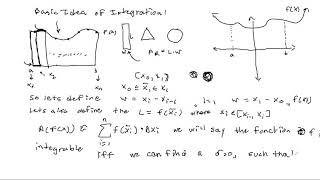 Basic Idea of Integration!
f(x)
w
A_R = L·W
f(x)
a x_1 x_2 b
x_0 x_n
a b
(x_0, x_1)
x_0 ≤ x̃_1 ≤ x_1
so lets define w = x_i - x_{i-1}, i=1 w = x_1 - x_0, f(x̃_1)
Lets also define the L = f(x̃_i) where x̃_i ∈ [x_{i-1}, x_i]
A(f(x)) ≅ \sum_{i=1}^{n} f(x̃_i) · Δx_i we will say the function f is
integrable iff we can find a σ>0, such that